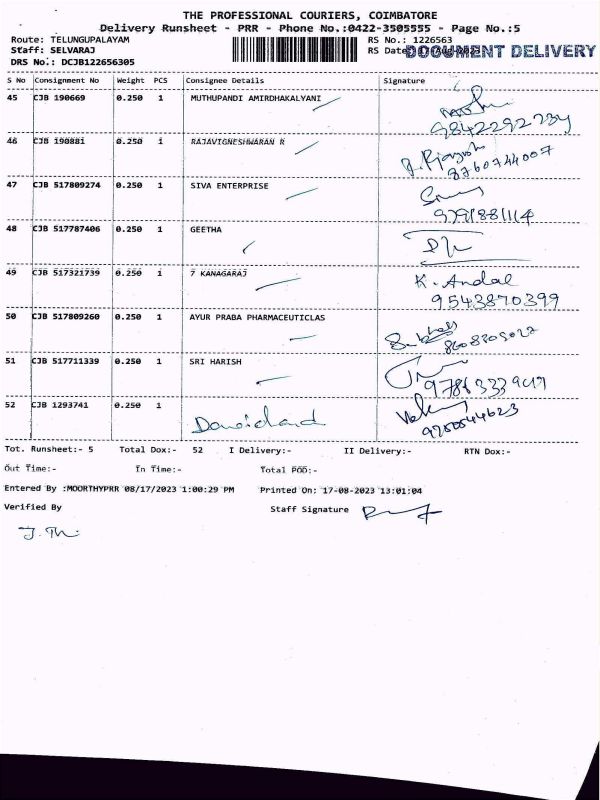 THE PROFESSIONAL COURIERS, COIMBATORE
Delivery Runsheet - PRR - Phone No.:0422-3505555 - Page No.:5
Route: TELUNGUPALAYAM RS No.: 1226563
Staff: SELVARAJ RS Date: DOCUMENT DELIVERY
DRS No.: DCJB122656305
S No Consignment No Weight PCS Consignee Details Signature
45 CJB 190669 0.250 1 MUTHUPANDI AMIRDHAKALYANI
9842292234
46 CJB 190881 0.250 1 RAJAVIGNESHWARAN R
8760744007
47 CJB 517809274 0.250 1 SIVA ENTERPRISE
9791881114
48 CJB 517787406 0.250 1 GEETHA
49 CJB 517321739 0.250 1 7 KANAGARAJ K. Andal
9543870399
50 CJB 517809260 0.250 1 AYUR PRABA PHARMACEUTICLAS
51 CJB 517711339 0.250 1 SRI HARISH
52 CJB 1293741 0.250 1
Tot. Runsheet:- 5 Total Dox:- 52 I Delivery:- II Delivery:- RTN Dox:-
Out Time:- In Time:- Total POD:-
Entered By :MOORTHYPRR 08/17/2023 1:00:29 PM Printed On: 17-08-2023 13:01:04
Verified By Staff Signature